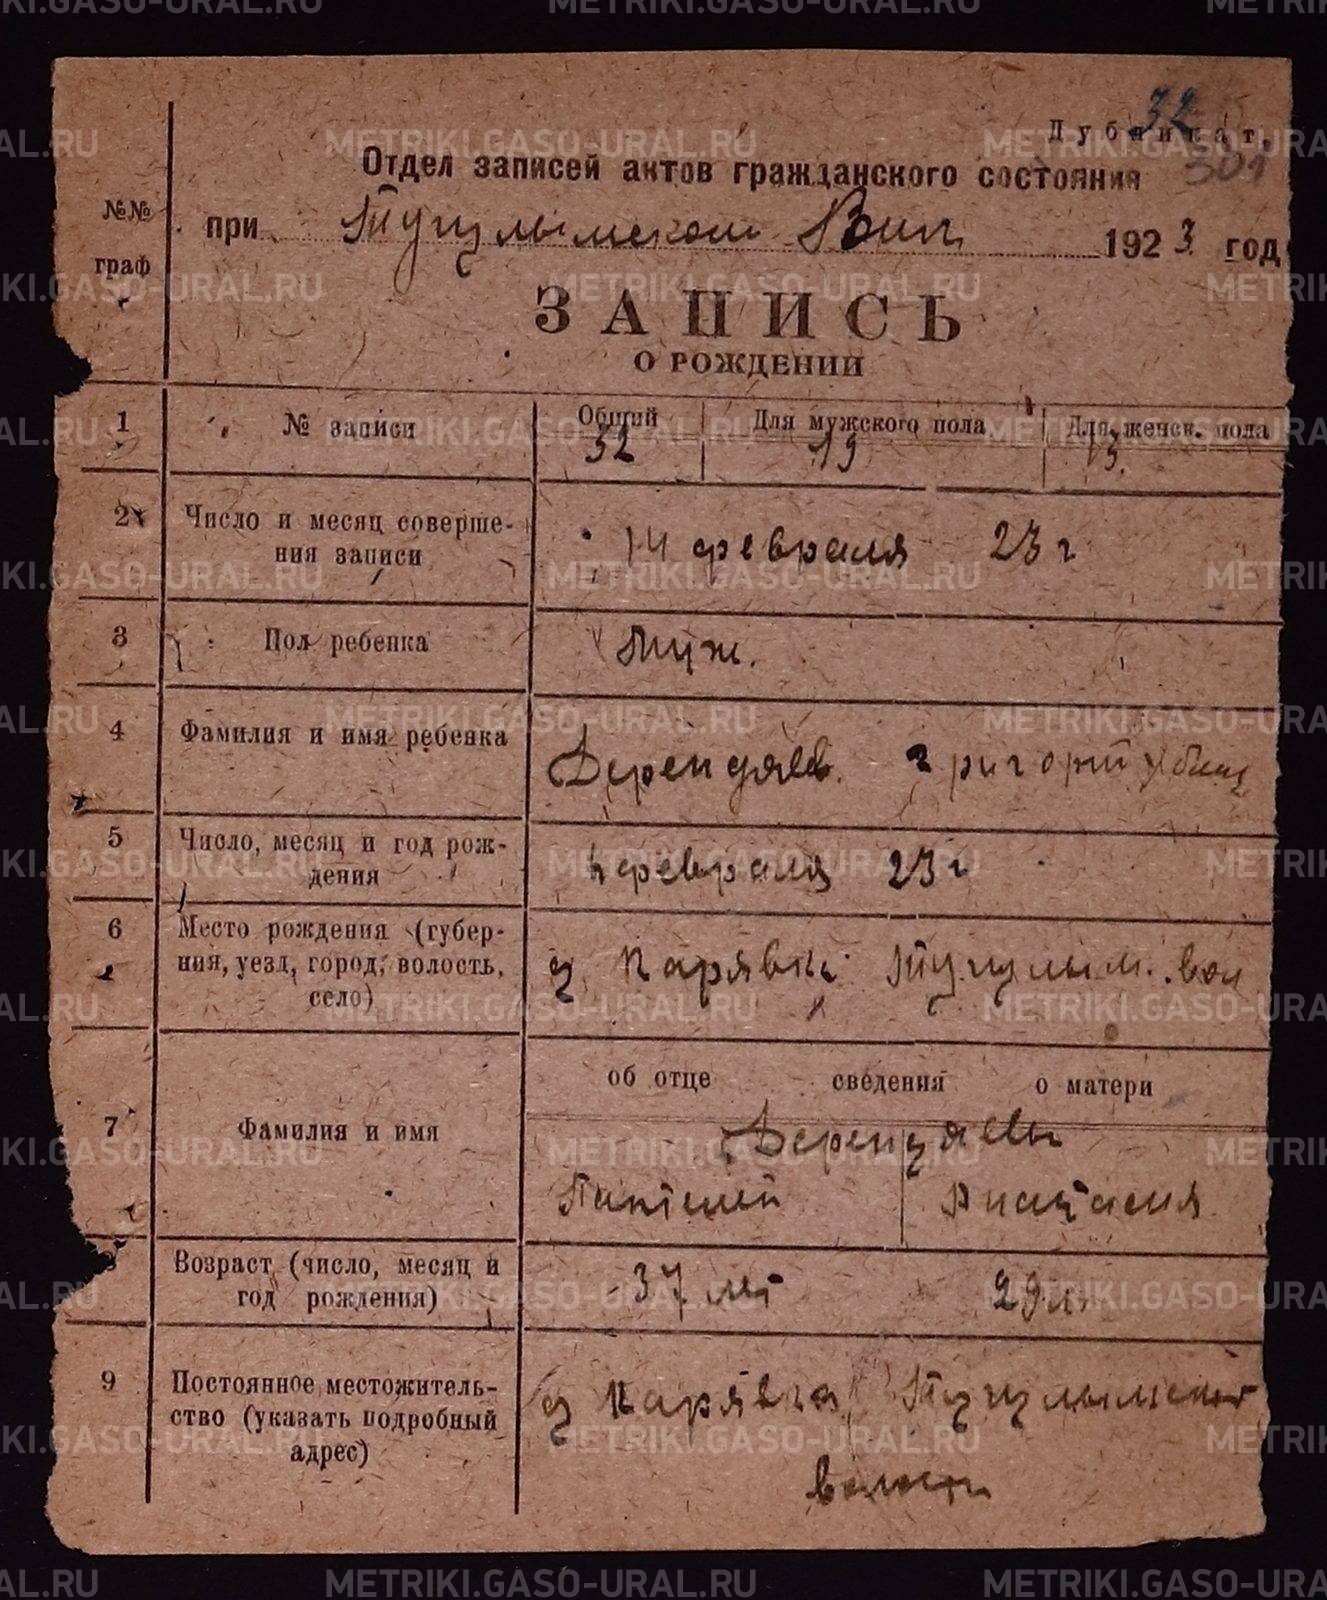 METRIKI.GASO-URAL.RU
32
Дубликат.
301
Отдел записей актов гражданского состояния
№№ граф
при Тугулымском Вик 1923 год
ЗАПИСЬ
О РОЖДЕНИИ
1 № записи Общий Для мужского пола Для женск. пола
32 19 13.
2 Число и месяц соверше-
ния записи
14 февраля 23 г
3 Пол ребенка Муж.
4 Фамилия и имя ребенка Дерендяев. григорий
5 Число, месяц и год рож-
дения
февраля 23 г
6 Место рождения (губер-
ния, уезд, город, волость,
село)
д. Карявка Тугулым. вол
об отце сведения о матери
7 Фамилия и имя
Дерендяевы
Пантелей Анастасия
8 Возраст (число, месяц и
год рождения)
37 лет 29 л.
9 Постоянное местожитель-
ство (указать подробный
адрес)
д Карявка Тугулымской
волости